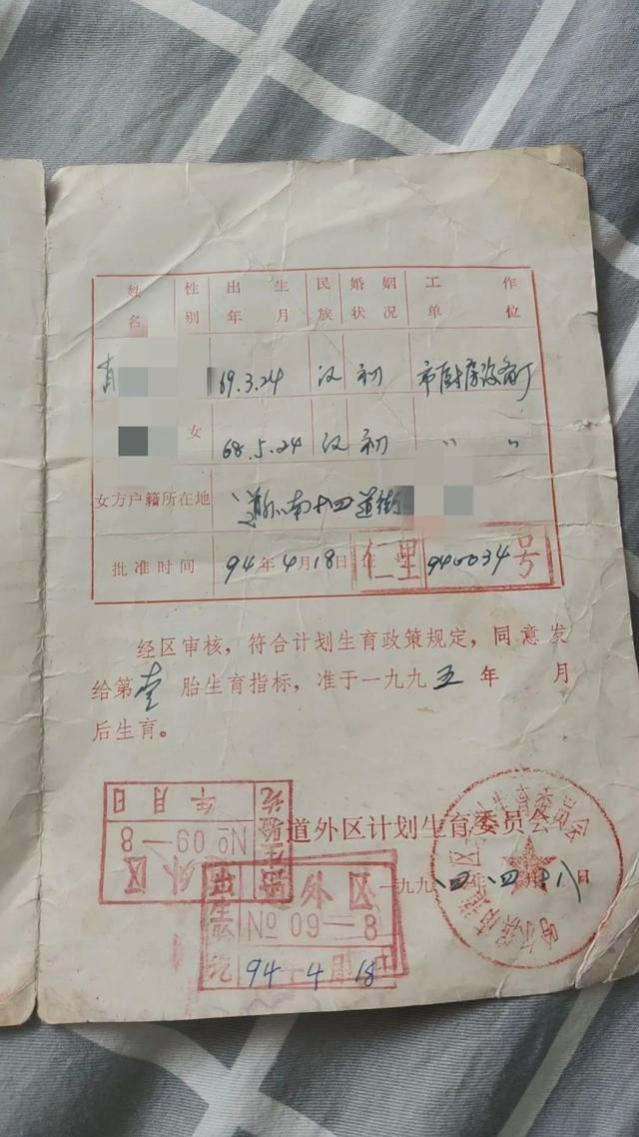 姓名 性别 出生年月 民族 婚姻状况 工作单位
69.3.24 汉 初 市厨房设备厂
女 68.5.24 汉 初 〃 〃
女方户籍所在地 道外南十四道街
批准时间 94年4月18日 仁里 940034号
经区审核，符合计划生育政策规定，同意发
给第壹胎生育指标，准于一九九五年 月
后生育。
年 月 日
外区
No 09—8
道外区计划生育委员会
一九九四年四月十八日
外区
No 09—8
94 4月18日